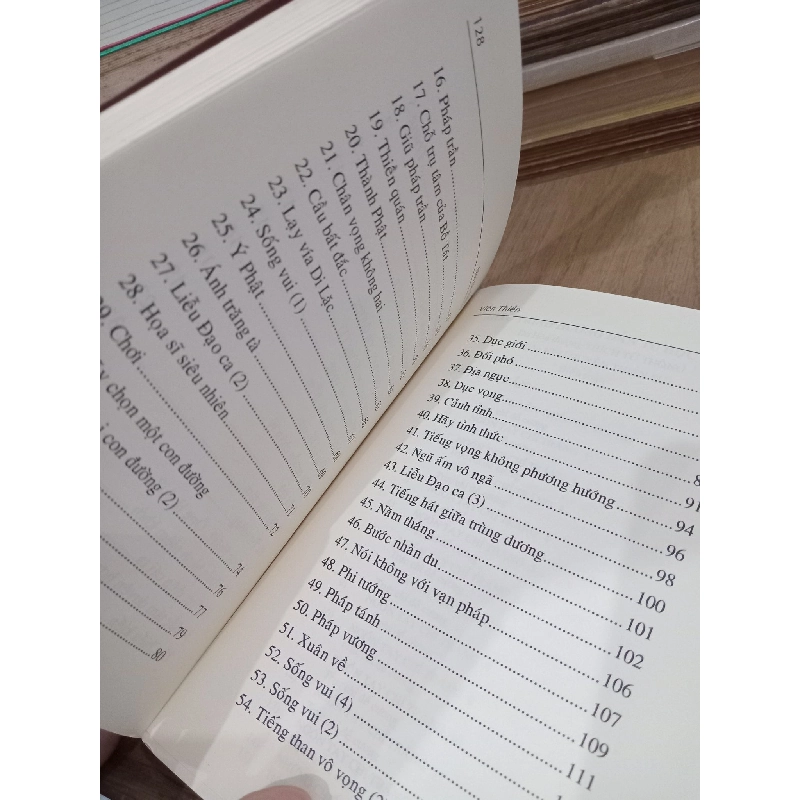 128
16. Pháp trần
17. Chỗ trụ tâm của Bồ Tát
18. Giũ pháp trần
19. Thiền quán
20. Thành Phật
21. Chân vọng không hai
22. Cầu bất đắc
23. Lạy vía Di Lặc
24. Sống vui (1)
25. Ý Phật
26. Ánh trăng là
27. Liễu Đạo ca (2)
28. Họa sĩ siêu nhiên
29. Chơi
chọn một con đường
con đường (2)
72
74
76
77
79
80
Viên Thiền
35. Dục giới
36. Đối phó
37. Địa ngục
38. Dục vọng
39. Cảnh tỉnh
40. Hãy tỉnh thức
41. Tiếng vọng không phương hướng 91
42. Ngũ ấm vô ngã 94
43. Liễu Đạo ca (3) 96
44. Tiếng hát giữa trùng dương 98
45. Năm tháng 100
46. Bước nhàn du 101
47. Nói không với vạn pháp 102
48. Phi tướng 106
49. Pháp tánh 107
50. Pháp vương 109
51. Xuân về 111
52. Sống vui (4)
53. Sống vui (2)
54. Tiếng than vô vọng